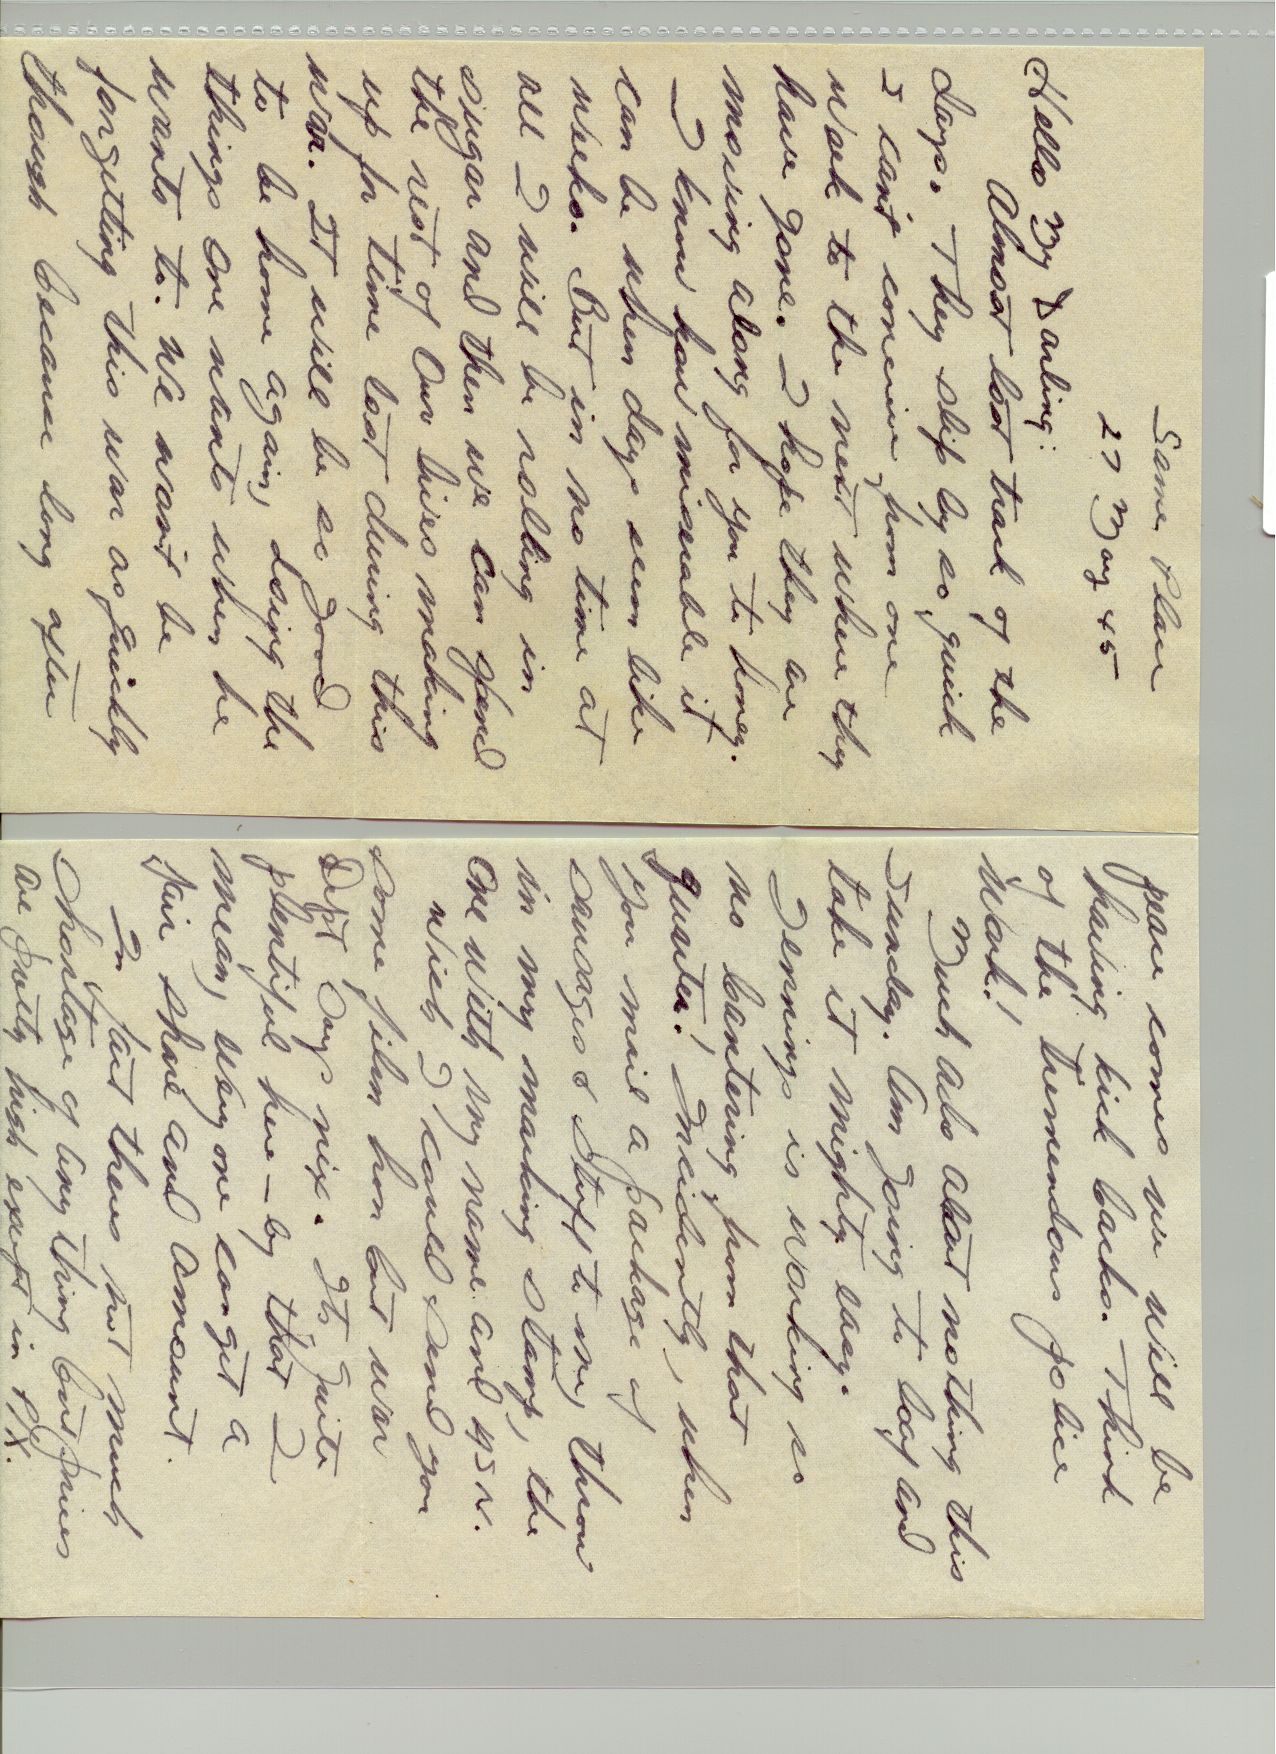 Same Place
27 May 45
Hello My Darling:
Almost lost track of the
days. They slip by so quick
I can't conceive from one
week to the next where they
have gone. I hope they are
moving along for you to honey.
I know how miserable it
can be when days seem like
weeks. But in no time at
all I will be rolling in
sugar and then we can spend
the rest of our lives making
up for time lost during this
war. It will be so good
to be home again, doing the
things one wants when he
wants to. We want be
forgetting this war as quickly
though because long after
peace comes we will be
feeling kick backs. Think
of the tremendous police
work!
Much ado about nothing this
Sunday. Am going to loaf and
take it mighty easy.
Jennings is working so
no bantering from that
quarter! Incidently, when
you mail a package of
sausages & stuff to me, throw
in my marking stamp, the
one with my name and ASN.
Wish I could send you
some film hon but war
Dept says nix. Its quite
plentiful here - by that I
mean, everyone can get a
fair share and amount.
In fact theres not much
shortage of any thing but prices
are pretty high except in P/X.